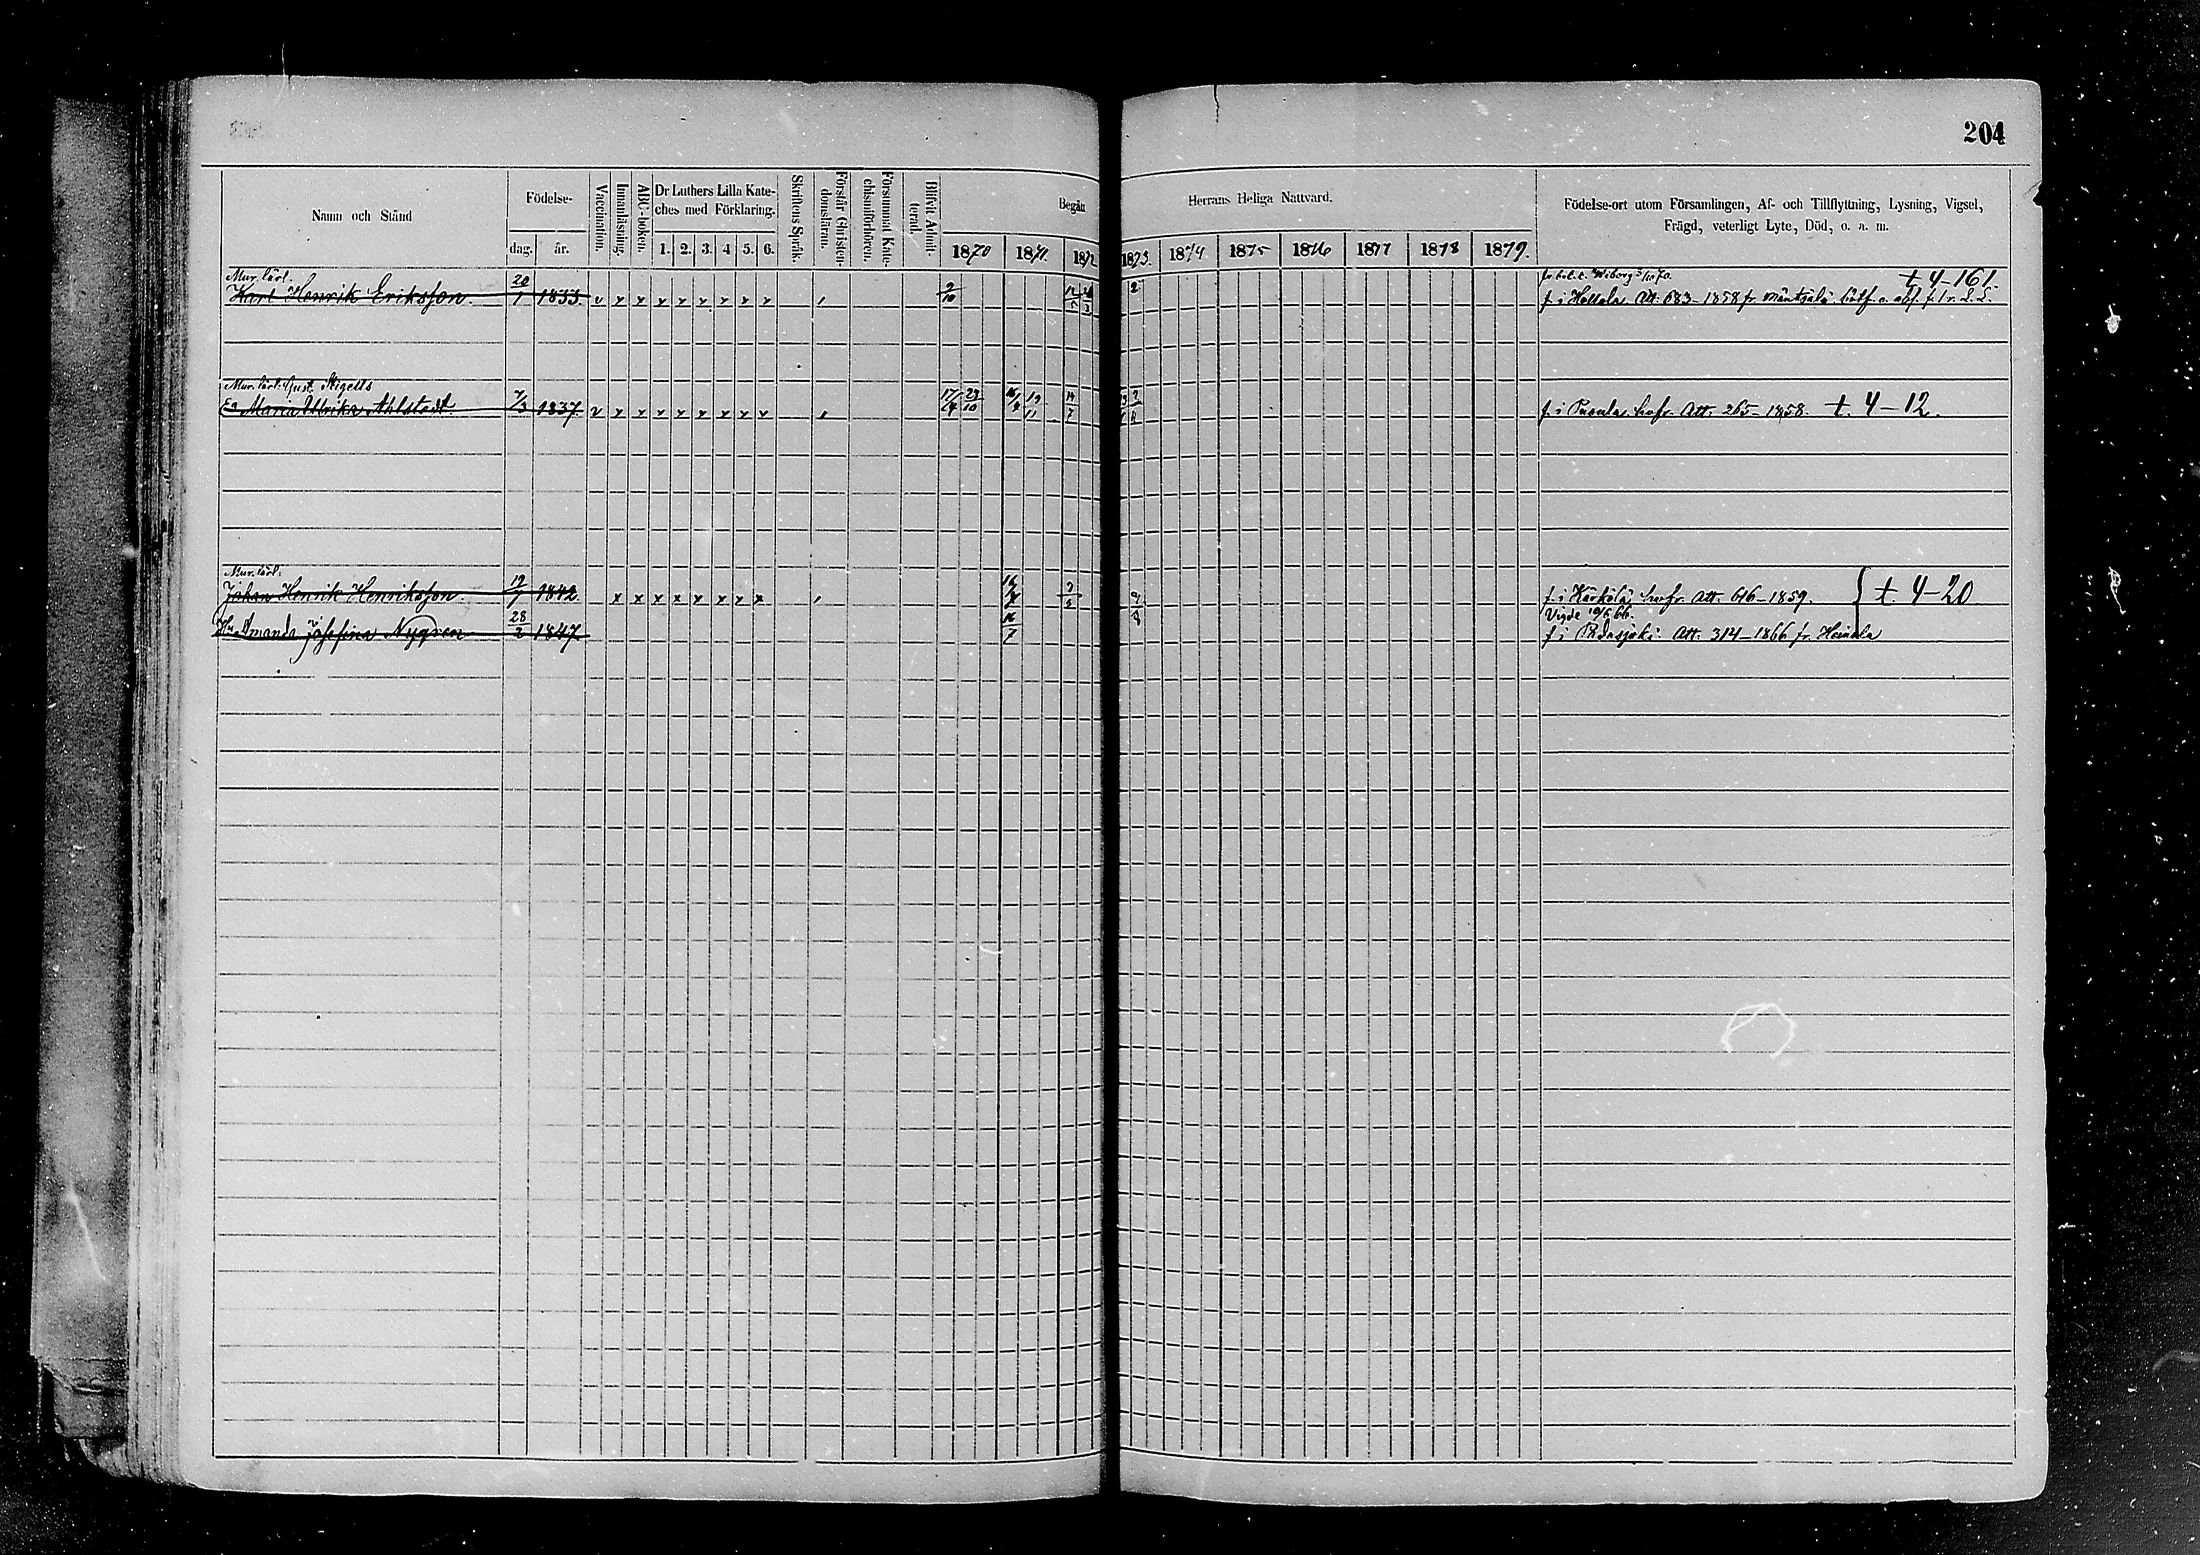 204
Namn och Stånd
Födelse-
dag. år.
Vaccination.
Innanläsning.
ABC-boken.
Dr Luthers Lilla Kate-
ches med Förklaring.
1. 2. 3. 4 5. 6.
Skriftens Språk.
Förstår Christen-
domsläran.
Försummat Kate-
chismiförhören.
Blifvit Admit-
terad.
Begån
Herrans Heliga Nattvard.
1870 1871 1872 1873. 1874 1875 1876 1877 1878 1879.
Födelse-ort utom Församlingen, Af- och Tillflyttning, Lysning, Vigsel,
Frägd, veterligt Lyte, Död, o. a. m.
Mur. lärl. Wiborg 3/10 70. t. 4-161.
Karl Henrik Eriksson. 20/1 1833 v x x x x x x x x 2/10 f. i Hollola Att. 683-1858 fr. Mäntsälä
Mur. lärl. Gust. Stigells
Ea Maria Ulrika Ahlstedt. 7/3 1837 v x x x x x x x x 23/10 f. i Pusula Att. 265-1858. t. 4-12.
Mur. lärl.
Johan Henrik Henriksson. 19/7 1842 x x x x x x x x f. i Kärkölä Att. 616-1859. t. 4-20
Vigde 10/6 66.
Hu Amanda Josefina Nygren 28/2 1847 16/7 f. i Padasjoki. Att. 314-1866 fr. Heinola